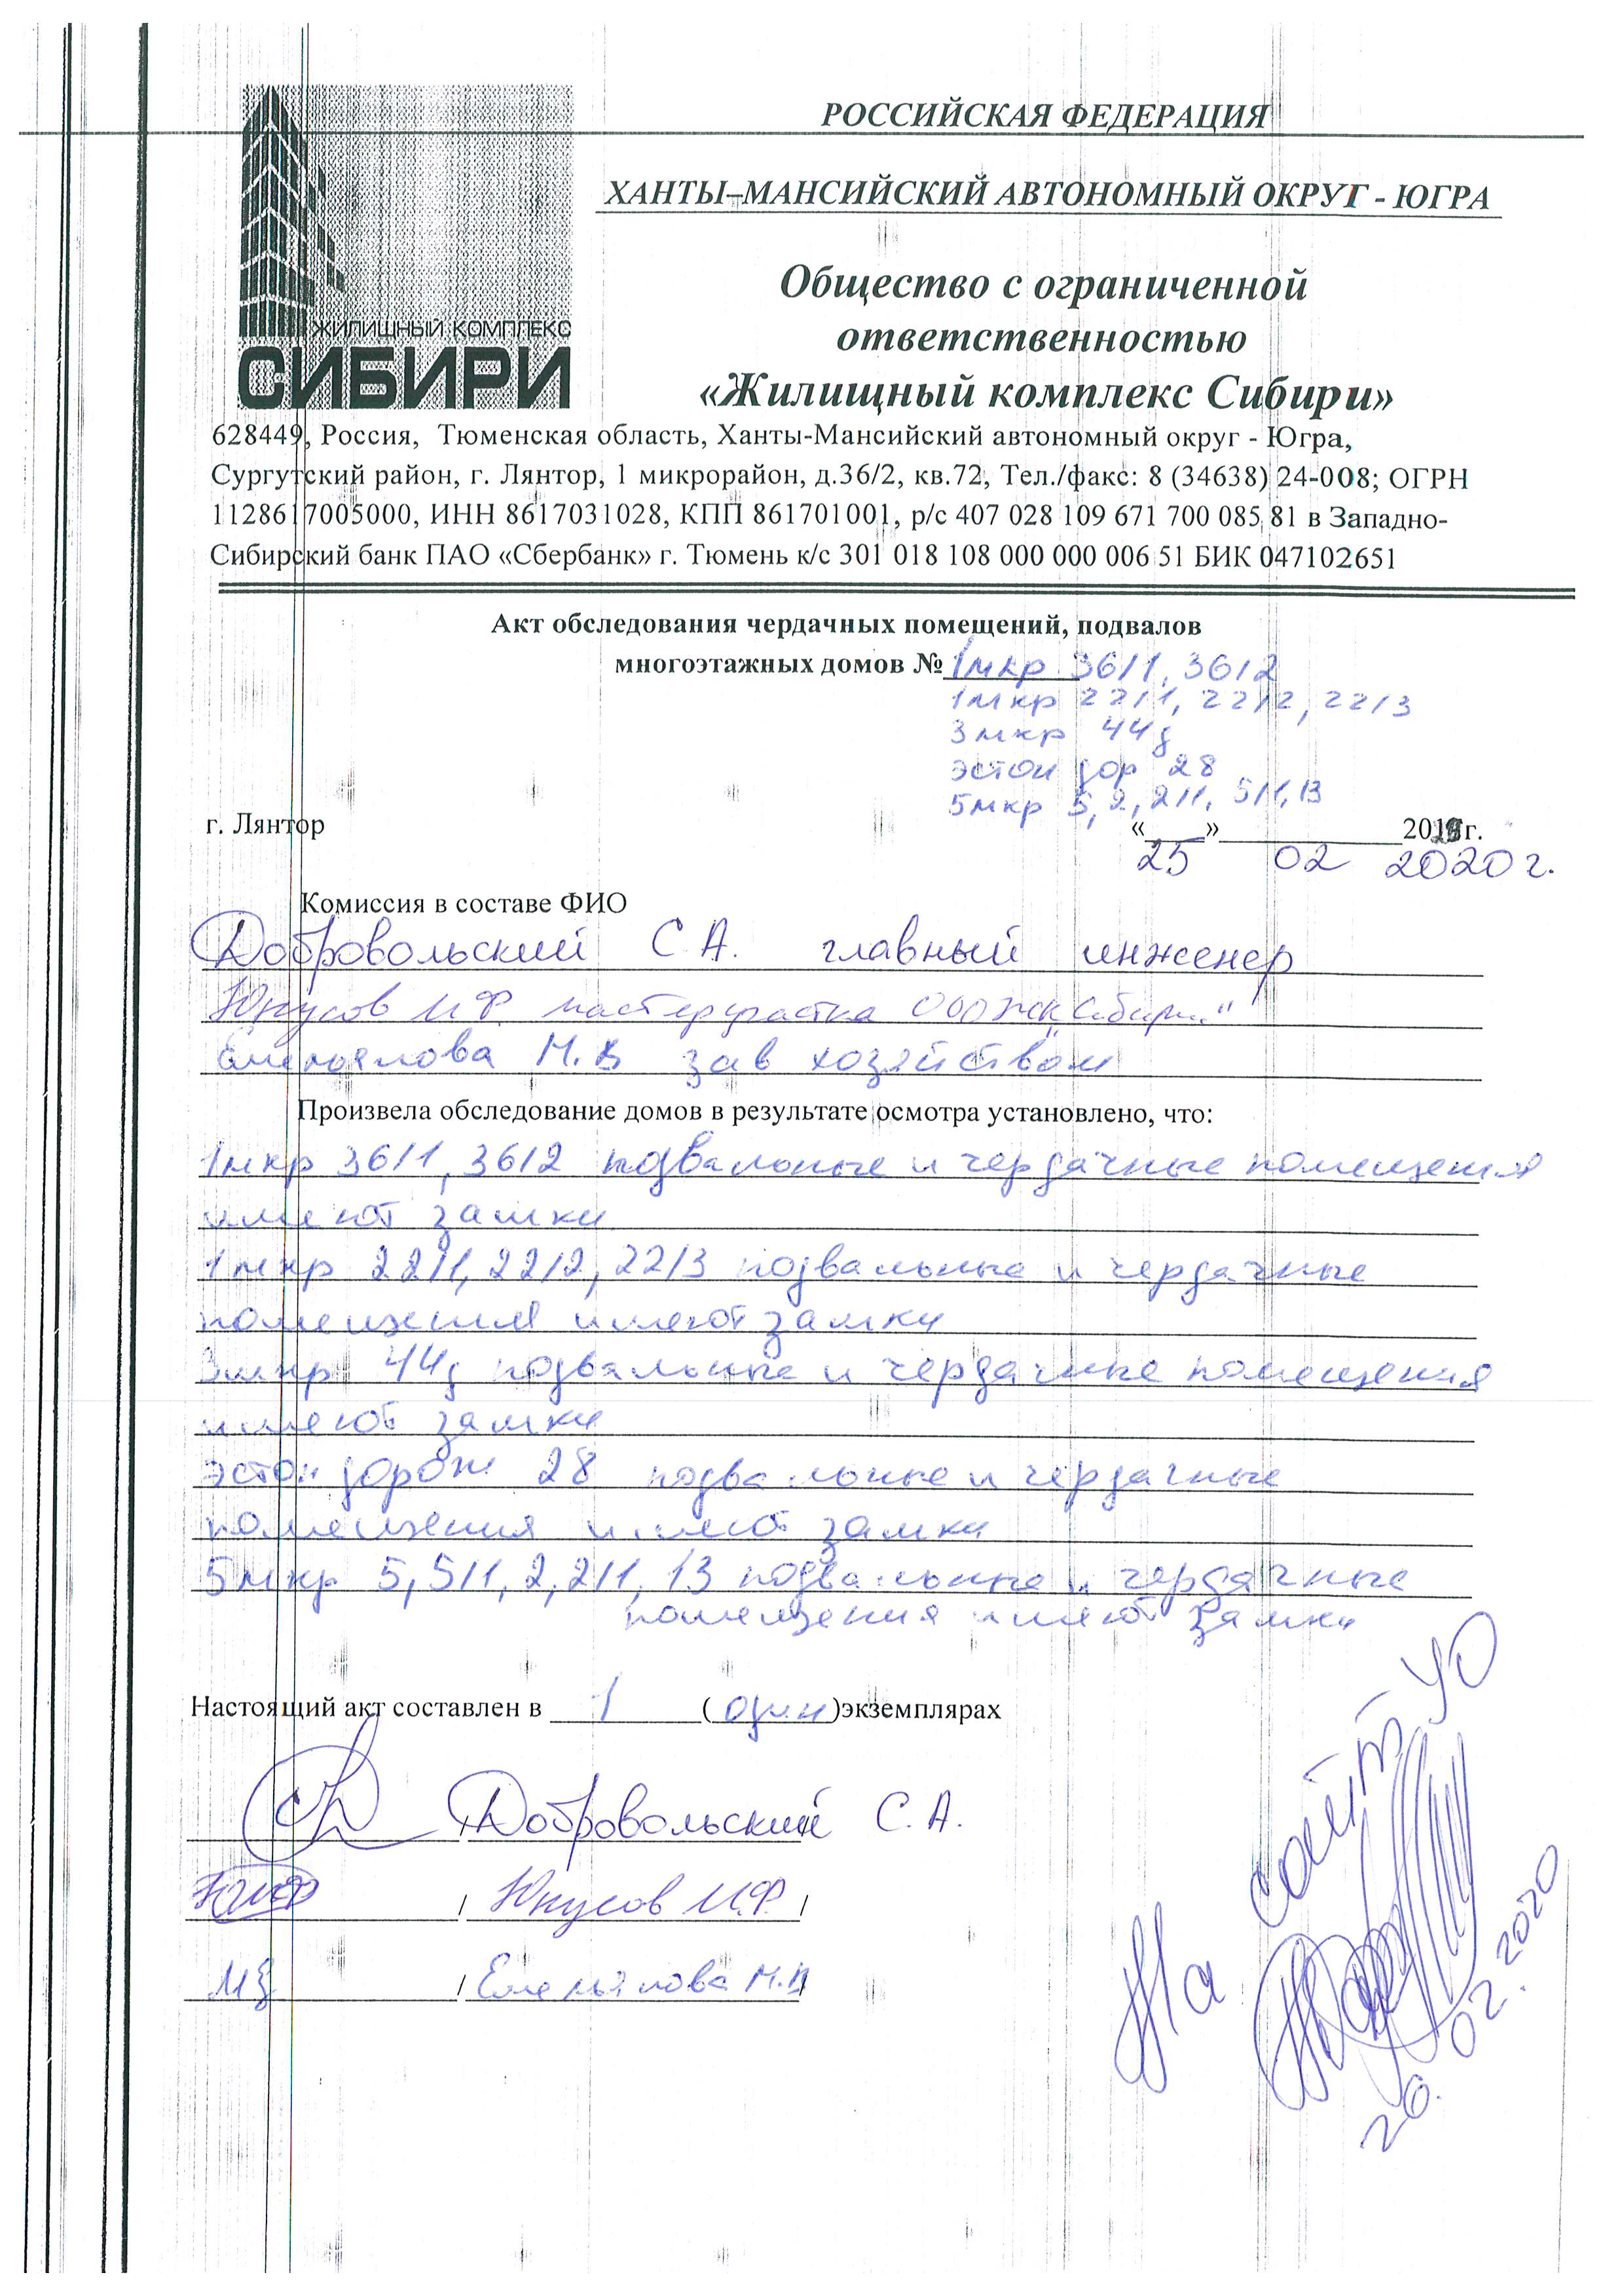 РОССИЙСКАЯ ФЕДЕРАЦИЯ
ХАНТЫ–МАНСИЙСКИЙ АВТОНОМНЫЙ ОКРУГ - ЮГРА
Общество с ограниченной
ответственностью
«Жилищный комплекс Сибири»
ЖИЛИЩНЫЙ КОМПЛЕКС
СИБИРИ
628449, Россия, Тюменская область, Ханты-Мансийский автономный округ - Югра,
Сургутский район, г. Лянтор, 1 микрорайон, д.36/2, кв.72, Тел./факс: 8 (34638) 24-008; ОГРН
1128617005000, ИНН 8617031028, КПП 861701001, р/с 407 028 109 671 700 085 81 в Западно-
Сибирский банк ПАО «Сбербанк» г. Тюмень к/с 301 018 108 000 000 006 51 БИК 047102651
Акт обследования чердачных помещений, подвалов
многоэтажных домов № 1мкр 36/1, 36/2
1мкр 22/1, 22/2, 22/3
3мкр 44д
эстон дор 28
5мкр 5, 2, 2/1, 5/1, 13
г. Лянтор «___»____________ 201 г.
25 02 2020 г.
Комиссия в составе ФИО
Добровольский С.А. главный инженер
Юнусов И.Ф. мастер участка ООО ЖК "Сибири"
Емельянова М.В зав хозяйством
Произвела обследование домов в результате осмотра установлено, что:
1мкр 36/1, 36/2 подвальные и чердачные помещения
имеют замки
1мкр 22/1, 22/2, 22/3 подвальные и чердачные
помещения имеют замки
3мкр 44д подвальные и чердачные помещения
имеют замки
эстон дорож 28 подвальные и чердачные
помещения имеют замки
5мкр 5, 5/1, 2, 2/1, 13 подвальные и чердачные
помещения имеют замки
Настоящий акт составлен в 1 ( один )экземплярах
Добровольский С.А.
/ Юнусов И.Ф. /
/ Емельянова М.В /
На сайт УО
26.02.2020